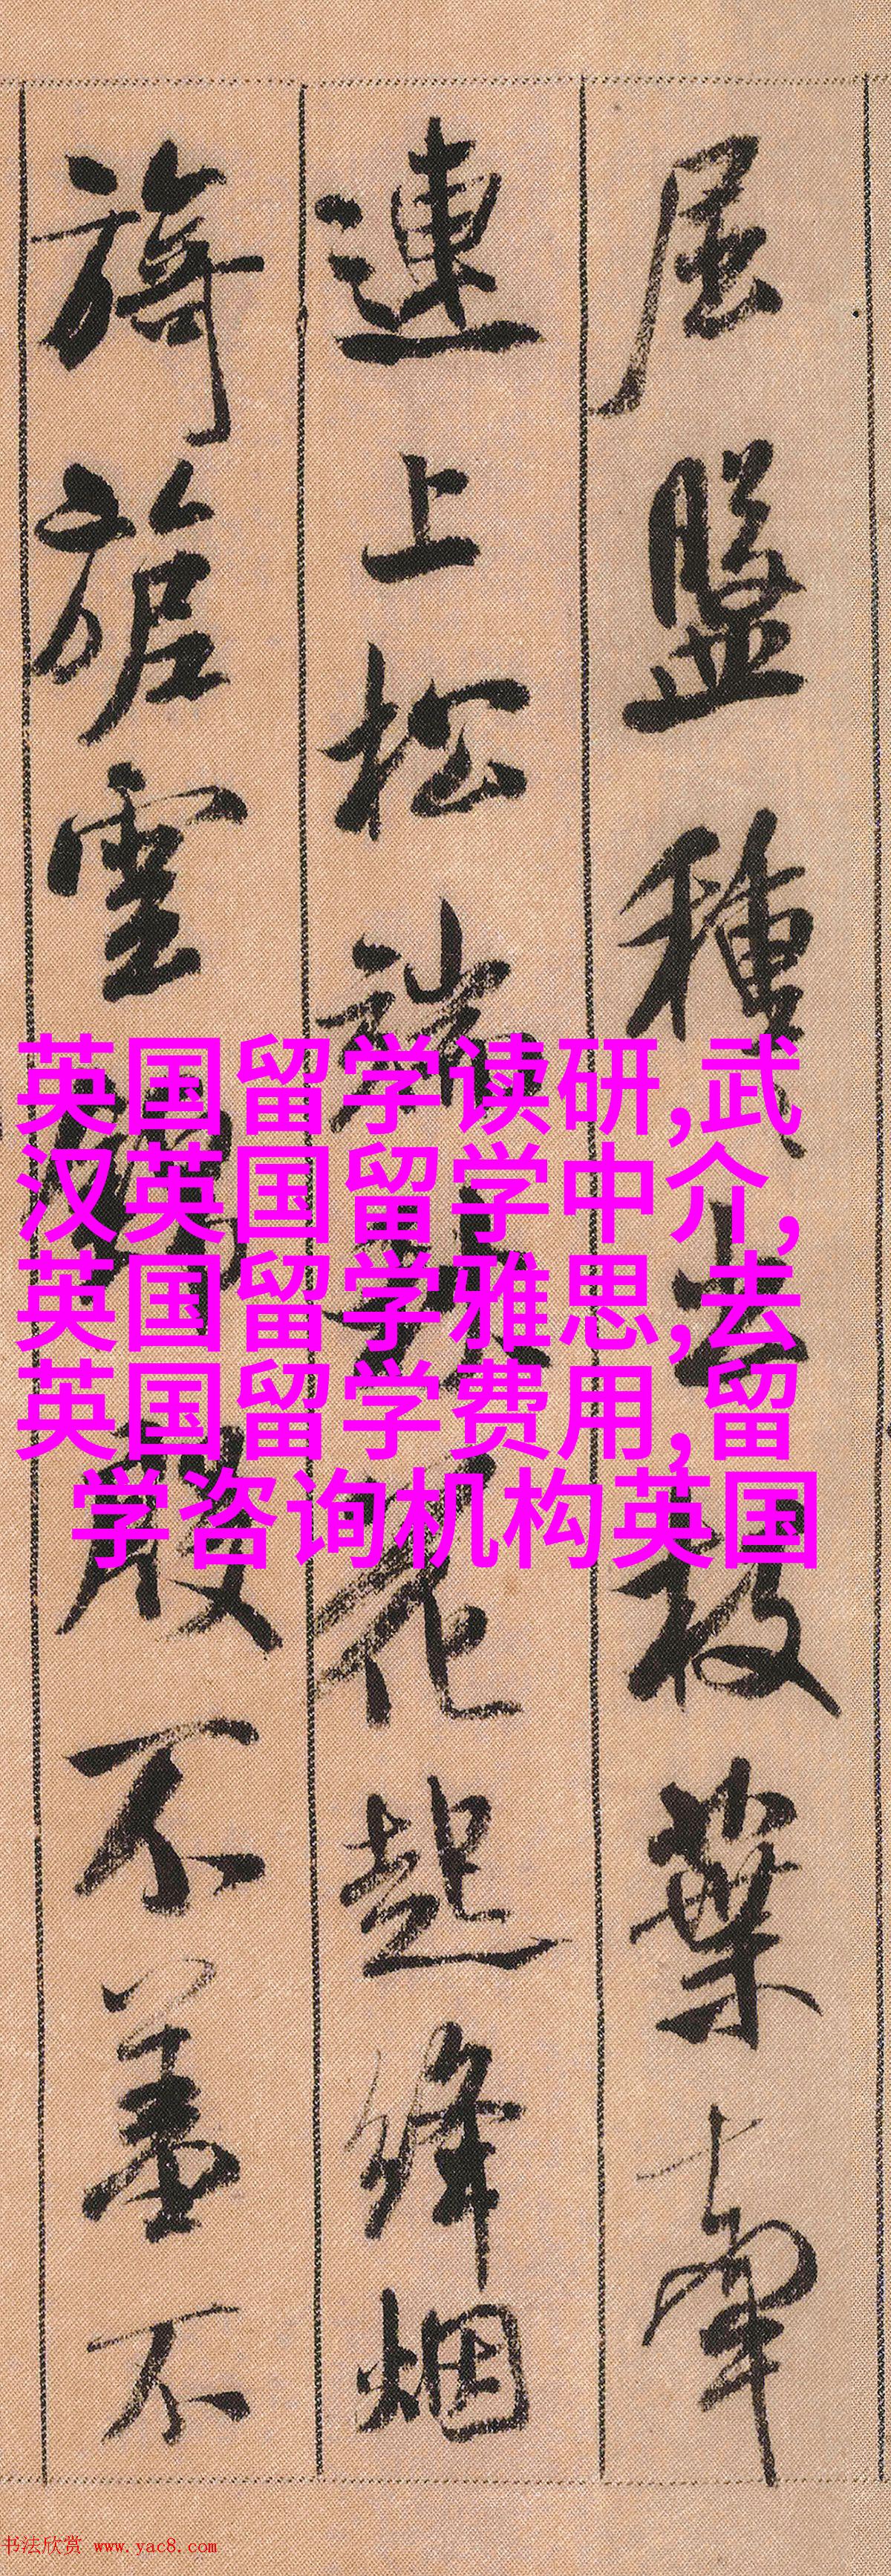 屈盤種々出枝葉牽
連上松端秋花起絳烟
旖旎雲錦殷不羞不
英国留学读研,武
汉英国留学中介,
英国留学雅思,去
英国留学费用,留
学咨询机构英国
书法欣赏 www.yac8.com